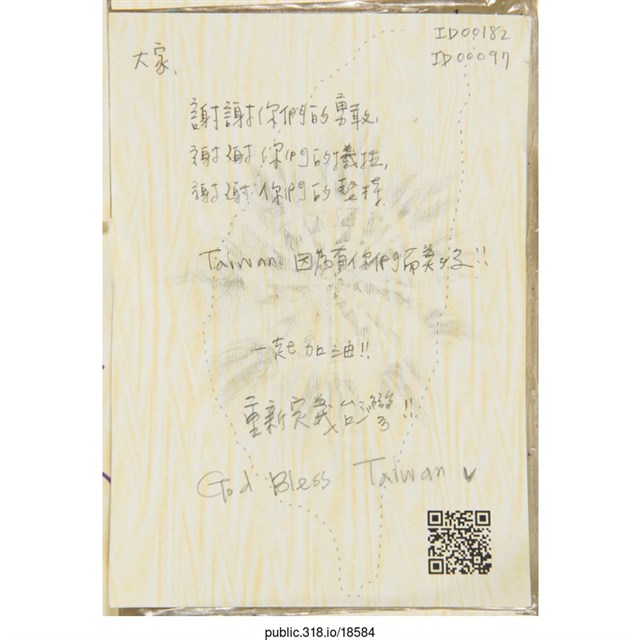 ID00182
ID00097
大家,
謝謝你們的勇敢,
謝謝你們的犧牲,
謝謝你們的堅持
Taiwan 因為有你們而美好!!
一起加油!!
重新定義台灣!!
God Bless Taiwan
public.318.io/18584